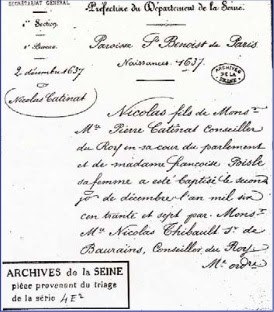 SECRÉTARIAT GÉNÉRAL
Préfecture du Département de la Seine.
2 décembre 1637
Paroisse St Benoist de Paris
Naissances. 1637.
ARCHIVES
DE LA
SEINE
Nicolas Catinat
Nicolas fils de Mons.
Me. Pierre Catinat Conseiller
du Roy en sa cour du parlement
et de madame francoise Poisle
sa femme a esté baptisé le second
jor de décembre l'an mil six
cen trante et sept par Mons.
Me. Nicolas Thibault Sr. de
Baurains, Conseiller du Roy
Me. ordre
ARCHIVES de la SEINE
pièce provenant du triage
de la série 4E²